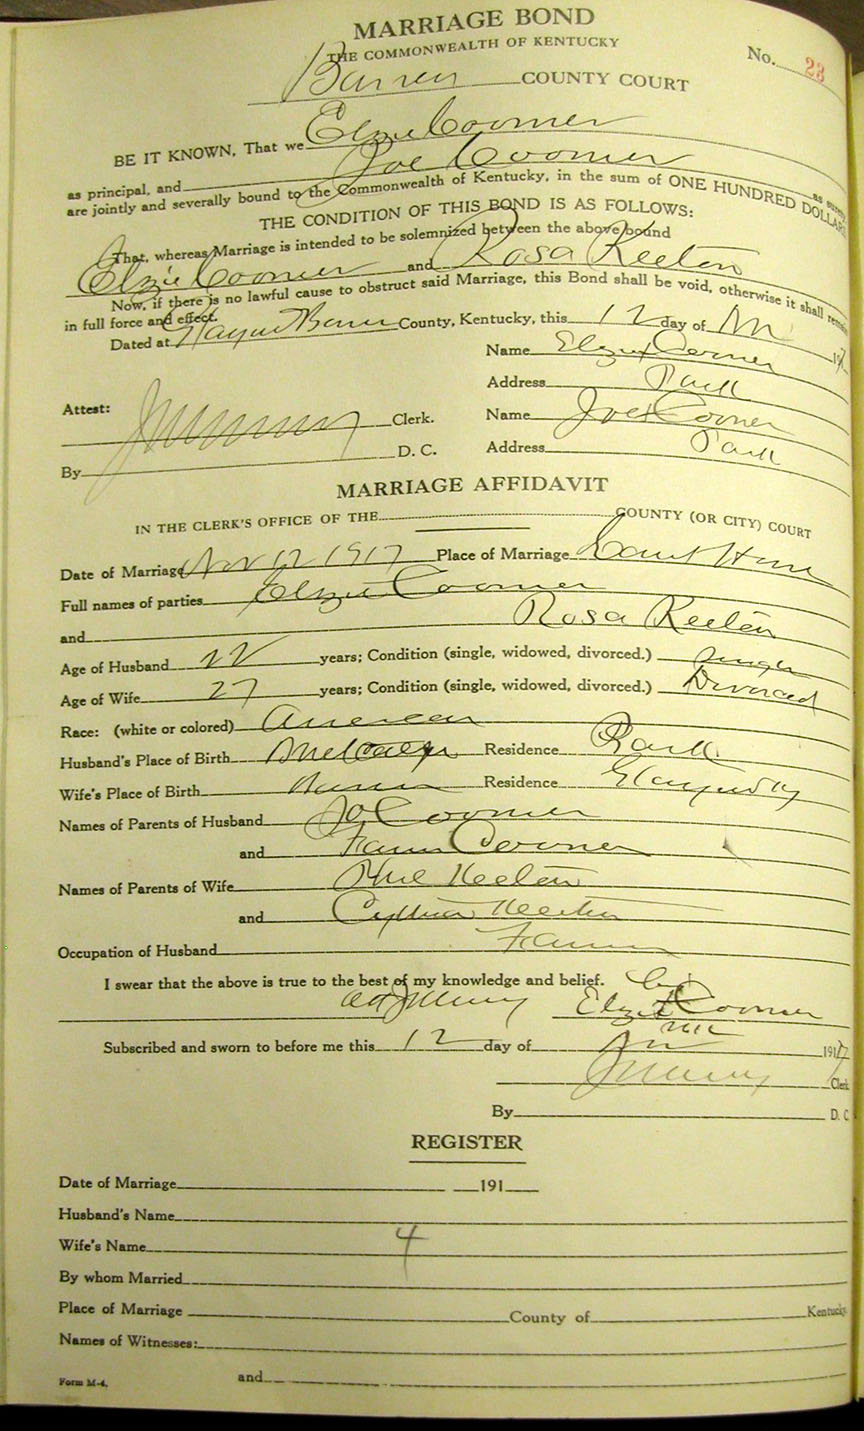 MARRIAGE BOND
THE COMMONWEALTH OF KENTUCKY
No. 23
Barren COUNTY COURT
BE IT KNOWN, That we Elzie Coomer
as principal, and Joe Coomer as surety,
are jointly and severally bound to the Commonwealth of Kentucky, in the sum of ONE HUNDRED DOLLARS
THE CONDITION OF THIS BOND IS AS FOLLOWS:
That, whereas Marriage is intended to be solemnized between the above bound
Elzie Coomer and Rosa Keeton
Now, if there is no lawful cause to obstruct said Marriage, this Bond shall be void, otherwise it shall remain
in full force and effect.
Dated at County, Kentucky, this 12 day of Nov 1917
Name Elzie Coomer
Address Park
Attest:
Clerk.
Name Joe Coomer
D. C.
Address Park
By
MARRIAGE AFFIDAVIT
IN THE CLERK'S OFFICE OF THE COUNTY (OR CITY) COURT
Date of Marriage Nov 12 1917 Place of Marriage Court House
Full names of parties Elzie Coomer
and Rosa Keeton
Age of Husband 22 years; Condition (single, widowed, divorced.) single
Age of Wife 27 years; Condition (single, widowed, divorced.) Divorced
Race: (white or colored) American
Husband's Place of Birth Metcalfe Residence Park
Wife's Place of Birth Barren Residence
Names of Parents of Husband Jo Coomer
and Coomer
Names of Parents of Wife Keeton
and Keeton
Occupation of Husband Farmer
I swear that the above is true to the best of my knowledge and belief.
Elzie Coomer
Subscribed and sworn to before me this 12 day of Nov 1917
Clerk
By D. C.
REGISTER
Date of Marriage 191
Husband's Name
Wife's Name 4
By whom Married
Place of Marriage County of Kentucky
Names of Witnesses:
and
Form M-4.